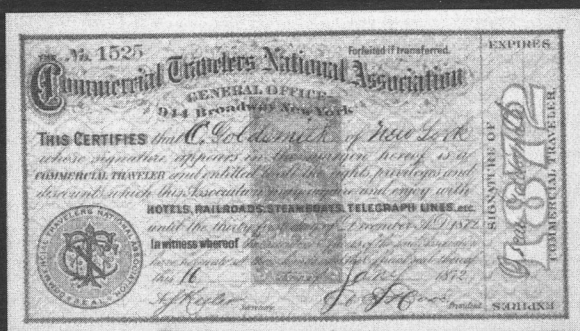 THE No. 1525 Forfeited if transferred.
Commercial Travelers National Association
GENERAL OFFICE
944 Broadway New York
THIS CERTIFIES that C. Goldsmith of New York
whose signature appears in the margin hereof is a
COMMERCIAL TRAVELER and entitled to all the rights, privileges and
discounts which this Association may acquire and enjoy with
HOTELS, RAILROADS, STEAMBOATS, TELEGRAPH LINES, etc.
until the thirty first day of December A.D. 1872.
In witness whereof the
have hereunto set
this 16 1872.
Secretary President
COMMERCIAL TRAVELERS NATIONAL ASSOCIATION
SEAL
EXPIRES
1872
SIGNATURE OF
COMMERCIAL TRAVELER.
EXPIRES